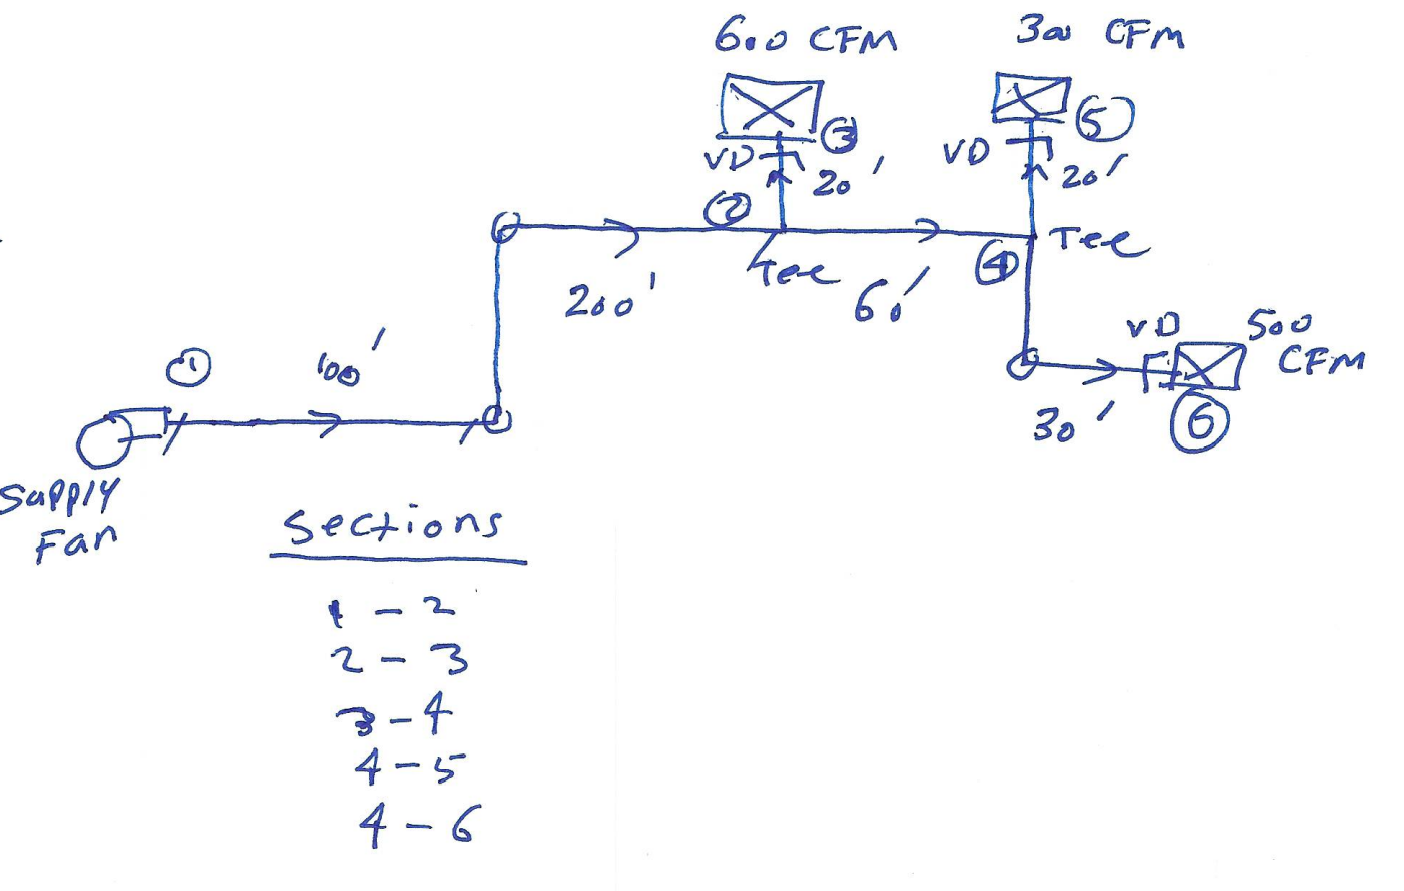 600 CFM
300 CFM
③
⑤
VD
20'
VD
20'
②
Tee
Tee
④
200'
60'
VD
500
CFM
①
100'
30'
⑥
Supply
Fan
Sections
1 - 2
2 - 3
3 - 4
4 - 5
4 - 6